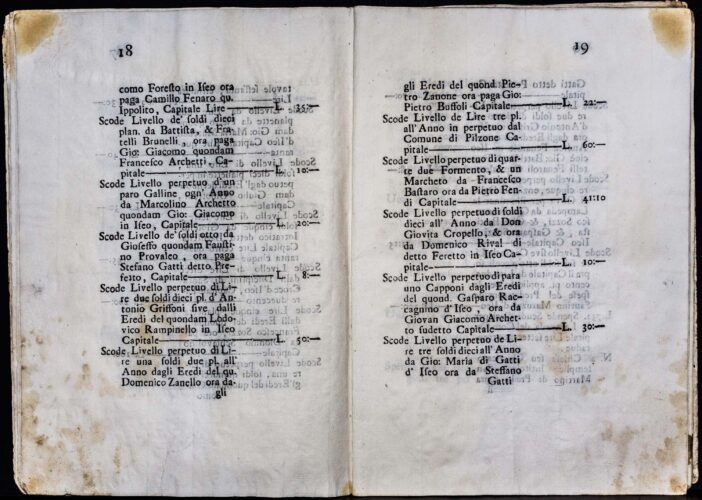 18
como Foresto in Iseo ora
paga Camillo Fenaro qu.
Ippolito, Capitale Lire — L. 15:—
Scode Livello de' soldi dieci
plan. da Battista, & Fra-
telli Brunelli, ora paga
Gio: Giacomo quondam
Francesco Archetti Ca-
pitale — L. 10:—
Scode Livello perpetuo d'un
paro Galline ogn' Anno
da Marcolino Archetto
quondam Gio: Giacomo
in Iseo, Capitale — L. 20:—
Scode Livello de' soldi otto da
Gioseffo quondam Fausti-
no Provaleo, ora paga
Stefano Gatti detto Pre-
fetto, Capitale — L. 8:—
Scode Livello perpetuo di Li-
re due soldi dieci pl. d'An-
tonio Griffoni sive dalli
Eredi del quondam Lodo-
vico Rampinello in Iseo
Capitale — L. 50:—
Scode Livello perpetuo di Li-
re una soldi due pl. all'
Anno dagli Eredi del qu.
Domenico Zanello ora da-
gli
19
gli Eredi del quond. Pie-
tro Zanone ora paga Gio:
Pietro Bussoli Capitale — L. 22:—
Scode Livello de Lire tre pl.
all'Anno in perpetuo dal
Comune di Pilzone Ca-
pitale — L. 60:—
Scode Livello perpetuo di quar-
te due Formento, & un
Marcheto da Francesco
Bastaro ora da Pietro Fen-
di Capitale — L. 41:10
Scode Livello perpetuo di soldi
dieci all' Anno da Don
Giovita Cropello, & ora
da Domenico Rival di
detto Feretto in Iseo Ca-
pitale — L. 10:—
Scode Livello perpetuo di para
uno Capponi dagli Eredi
del quond. Gasparo Rac-
cagnino d'Iseo, ora da
Giovan Giacomo Archet
to sudetto Capitale — L. 30:—
Scode Livello perpetuo de Li-
re tre soldi dieci all' Anno
da Gio: Maria di Gatti
d' Iseo ora da Steffano
Gatti